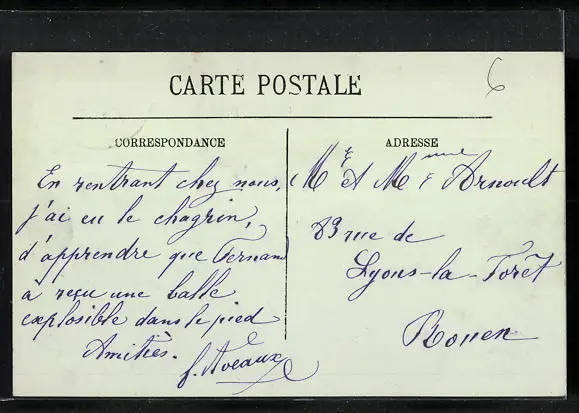 6
CARTE POSTALE
CORRESPONDANCE
En rentrant chez nous,
j'ai eu le chagrin,
d'apprendre que Fernand
à reçu une balle
explosible dans le pied
Amitiés.
ADRESSE
Mr et Mme Arnoult
89 rue de
Lyons-la-Forêt
Rouen